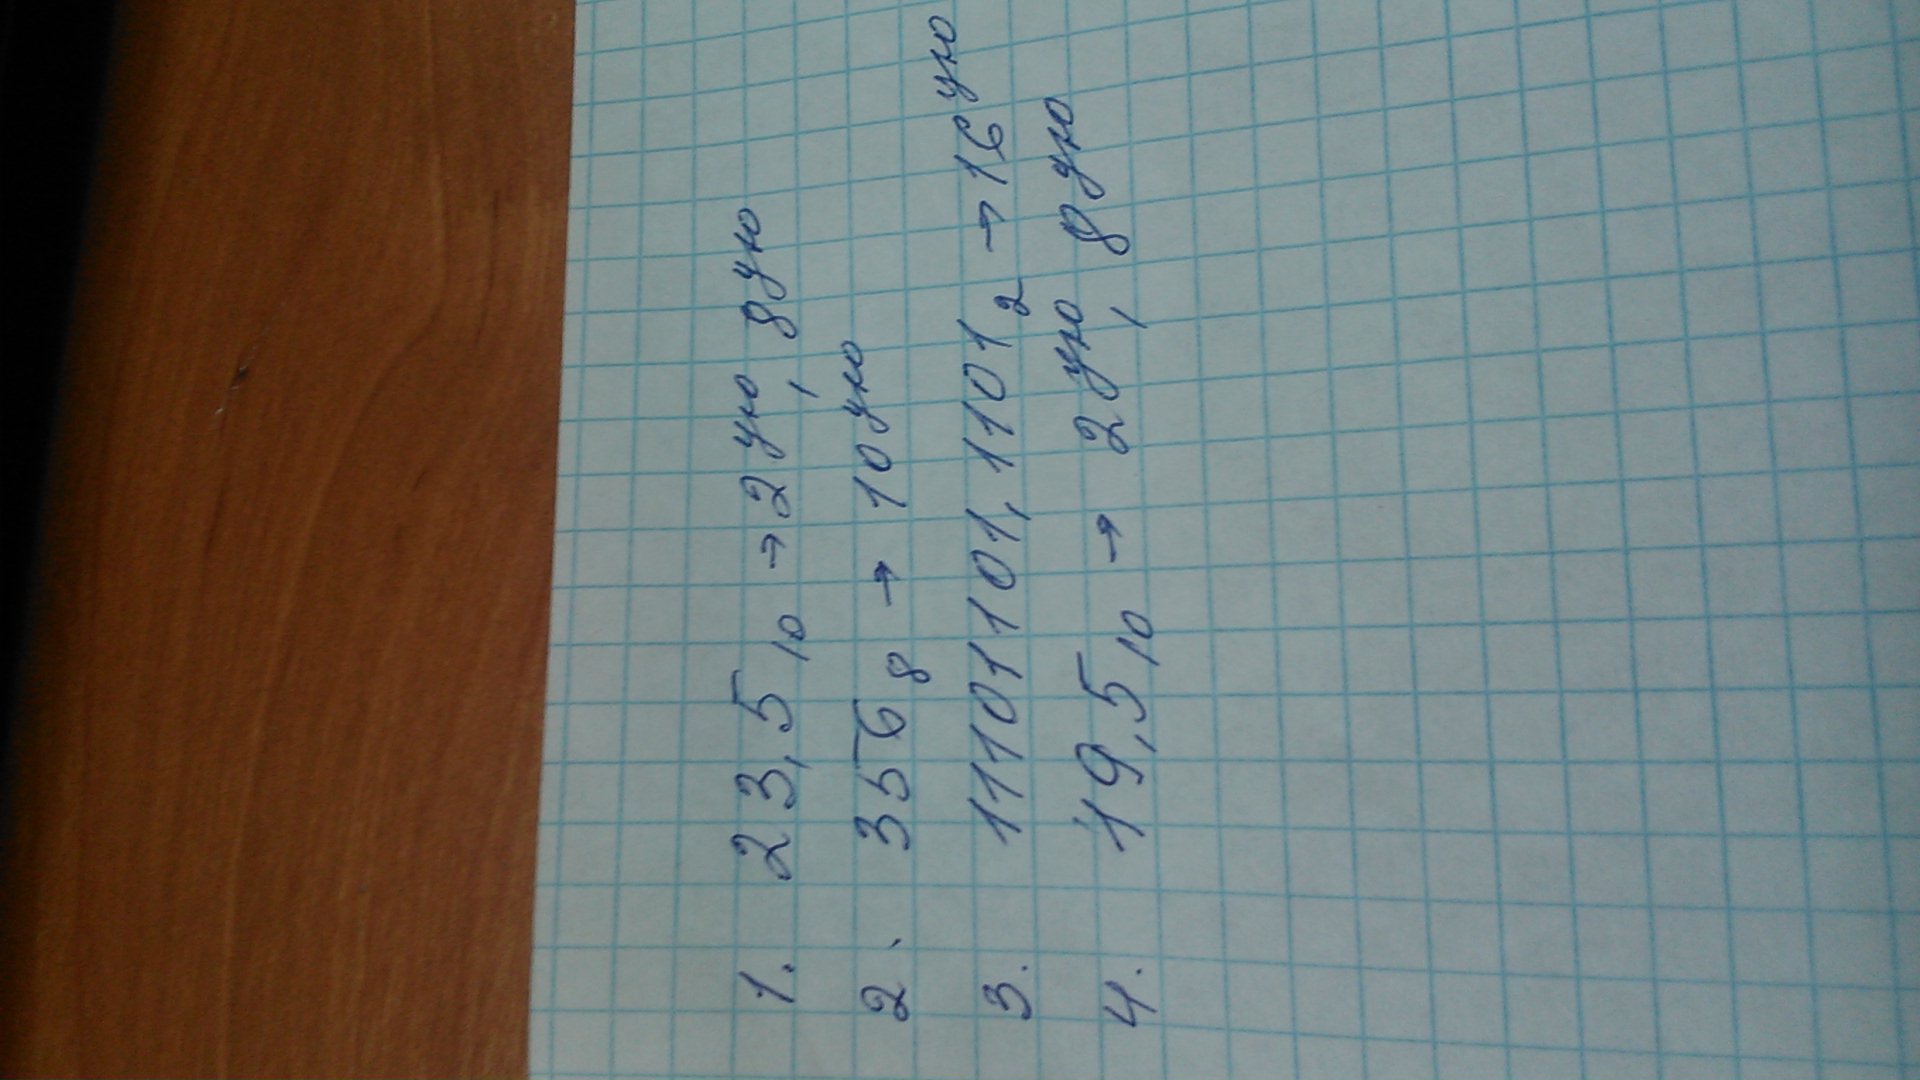 1. 23,5₁₀ → 2ую, 8ую
2. 356₈ → 10ую
3. 111011101,1101₂ → 16ую
4. 19,5₁₀ → 2ую, 8ую